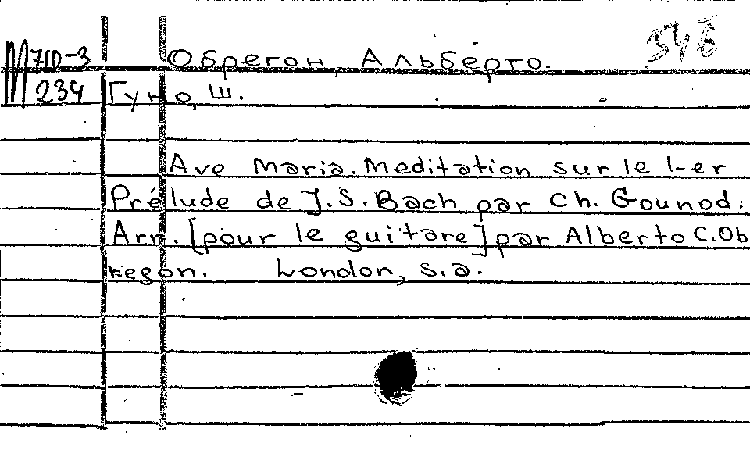 М 71D-3 Обрегон, Альберто. 
234 Гуно, Ш.
Ave Maria. Meditation sur le 1-er
Prélude de J.S. Bach par Ch. Gounod.
Arr. [pour le guitare] par Alberto C. Ob
regon. London, s.a.